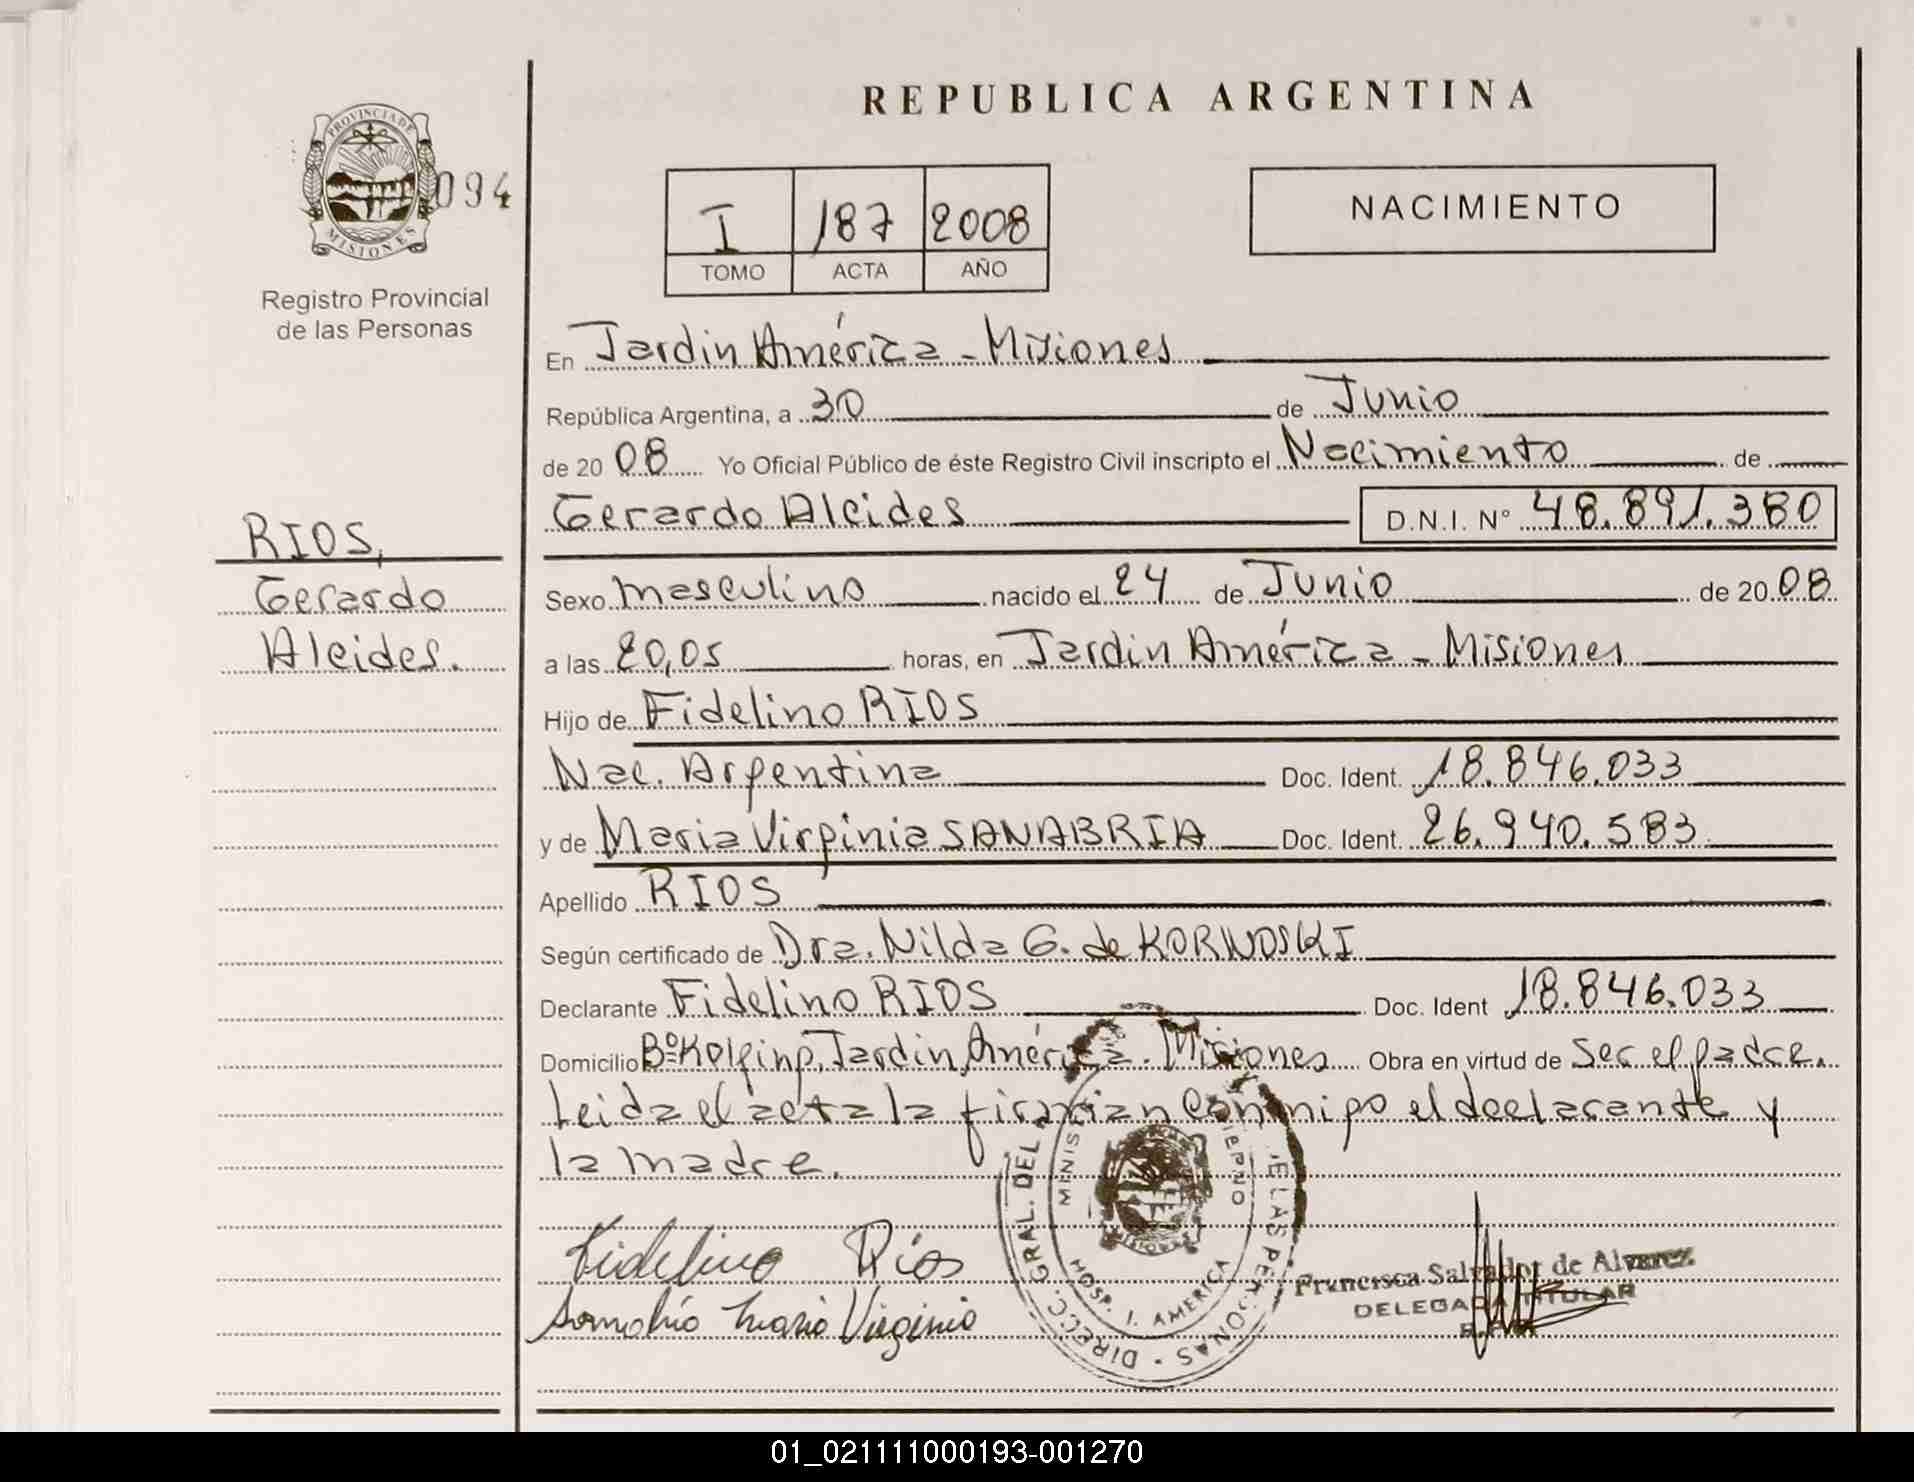 REPUBLICA ARGENTINA
PROVINCIA DE
MISIONES
094
Registro Provincial
de las Personas
I 187 2008
TOMO ACTA AÑO
NACIMIENTO
En Jardin América - Misiones
República Argentina, a 30 de Junio
de 20 08 Yo Oficial Público de éste Registro Civil inscripto el Nacimiento de
Gerardo Alcides D.N.I. N° 48.891.380
RIOS,
Gerardo
Alcides.
Sexo masculino nacido el 24 de Junio de 20 08
a las 20,05 horas, en Jardin América - Misiones
Hijo de Fidelino RIOS
Nac. Argentina Doc. Ident. 18.846.033
y de Maria Virginia SANABRIA Doc. Ident. 26.940.583
Apellido RIOS
Según certificado de Dra. Nilda G. de KORNOSKI
Declarante Fidelino RIOS Doc. Ident 18.846.033
Domicilio Bº Kolping, Jardin América. Misiones Obra en virtud de ser el padre.
Leida el acta la firman conmigo el declarante y
la madre.
Fidelino Rios
Maria Virginia
DIRECC. GRAL. DEL
HOSP. J. AMERICA
MISIONES
Francisca Salvador de Alvarez
DELEGADA TITULAR
01_021111000193-001270